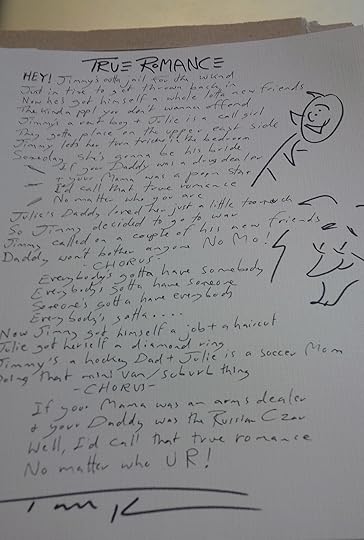 TRUE ROMANCE
HEY! Jimmy's outta jail for the wknd
Just in time to get thrown back in
Now he's got himself a whole lotta new friends
The kinda ppl you don't wanna offend
Jimmy's a boy + Julie is a call girl
They gotta place on the upper east side
Jimmy lets her turn tricks in the bedroom
Someday she's gonna be his bride
If your Daddy was a drug dealer
+ your Mama was a porn star
I'd call that true romance
No matter who you are
Julie's Daddy loved her just a little too much
So Jimmy decided to go to war
Jimmy called on a couple of his new friends
Daddy won't bother anyone NO MO!
-CHORUS-
Everybody's gotta have somebody
Everybody's gotta have someone
Someone's gotta have everybody
Everybody's gotta....
Now Jimmy got himself a job + a haircut
Julie got herself a diamond ring
Jimmy's a hockey Dad + Julie is a soccer Mom
Doing that mini van/suburb thing
-CHORUS-
If your Mama was an arms dealer
+ your Daddy was the Russian Czar
Well, I'd call that true romance
No matter who U R!